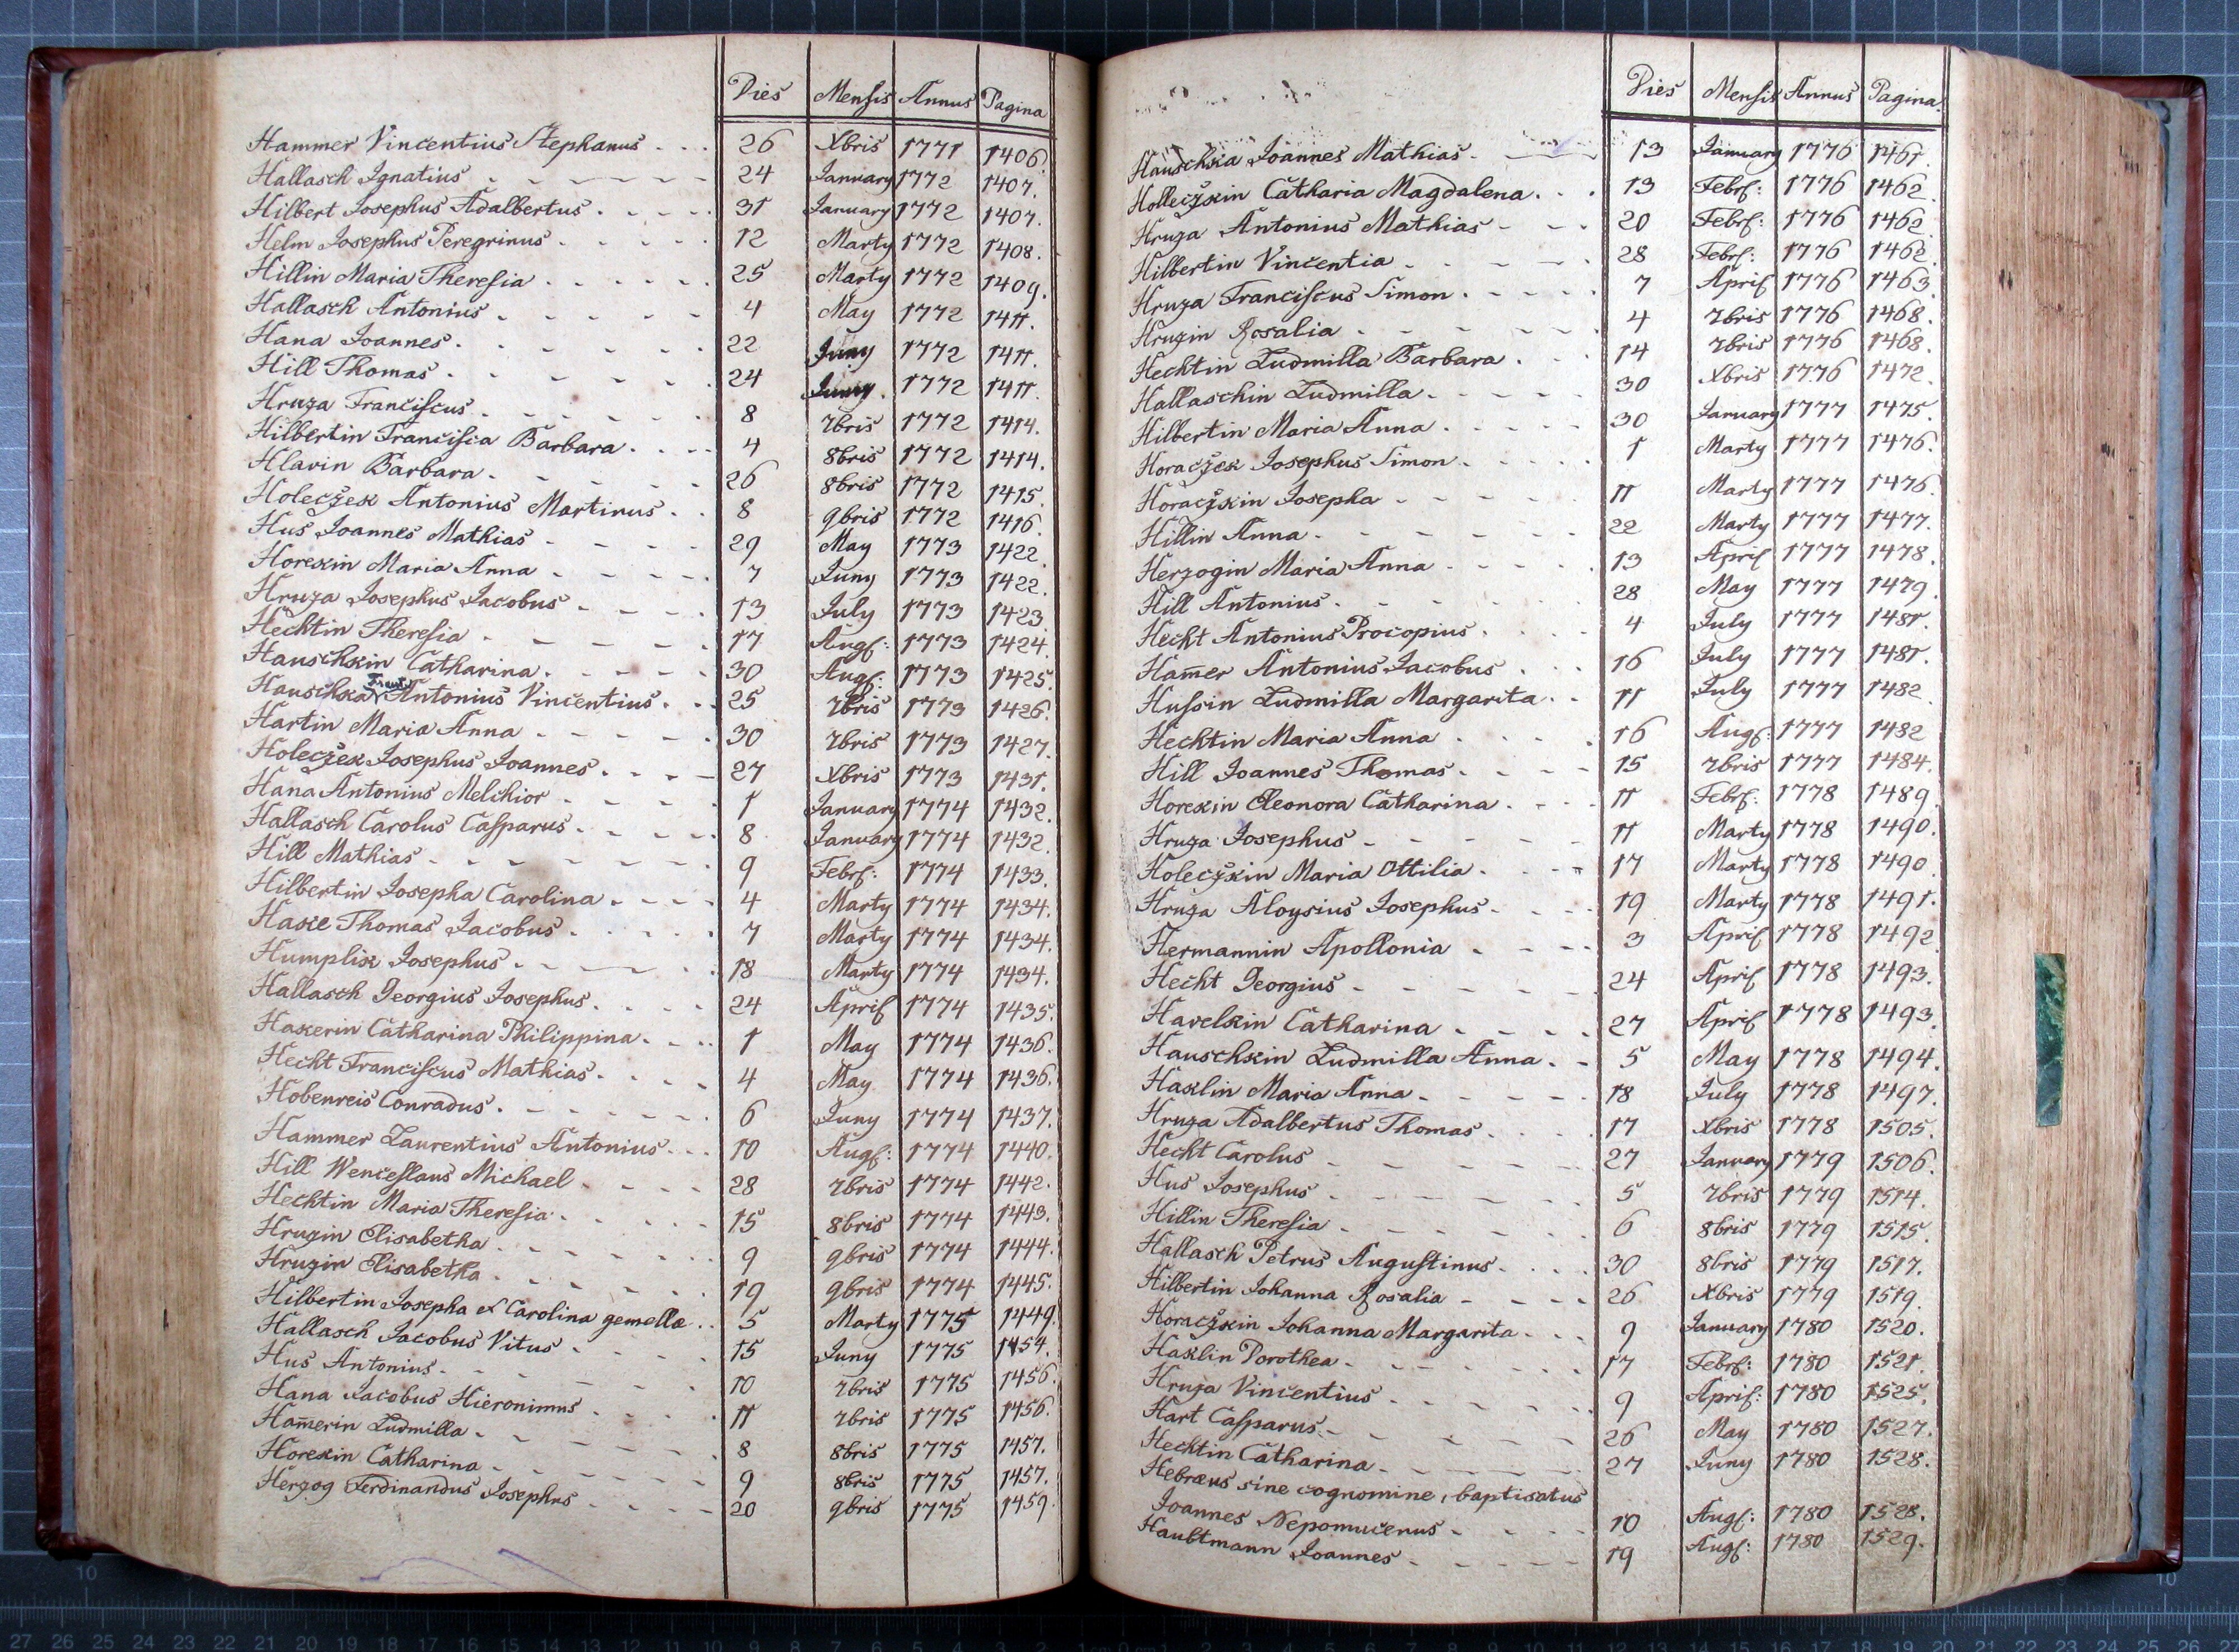 Dies Mensis Annus Pagina
Hammer Vincentius Stephanus 26 Xbris 1771 1406.
Hallasch Ignatius 24 January 1772 1407.
Hilbert Josephus Adalbertus 31 January 1772 1407.
Helm Josephus Peregrinus 12 Marty 1772 1408.
Hillin Maria Theresia 25 Marty 1772 1409.
Hallasch Antonius 4 May 1772 1411.
Hana Joannes 22 Juny 1772 1411.
Hill Thomas 24 Juny 1772 1411.
Hruza Franciscus 8 7bris 1772 1414.
Hilbertin Francisca Barbara 4 8bris 1772 1414.
Hlavin Barbara 26 8bris 1772 1415.
Holeczek Antonius Martinus 8 9bris 1772 1416.
Hus Joannes Mathias 29 May 1773 1422.
Horekin Maria Anna 7 Juny 1773 1422.
Hruza Josephus Jacobus 13 July 1773 1423.
Hechtin Theresia 17 Aug: 1773 1424.
Hauschkin Catharina 30 Aug: 1773 1425.
Hauschka Antonius Vincentius 25 7bris 1773 1426.
Hartin Maria Anna 30 7bris 1773 1427.
Holeczek Josephus Joannes 27 Xbris 1773 1431.
Hana Antonius Melchior 1 January 1774 1432.
Hallasch Carolus Casparus 8 January 1774 1432.
Hill Mathias 9 Febr: 1774 1433.
Hilbertin Josepha Carolina 4 Marty 1774 1434.
Hake Thomas Jacobus 7 Marty 1774 1434.
Humplik Josephus 18 Marty 1774 1434.
Hallasch Georgius Josephus 24 April 1774 1435.
Hakerin Catharina Philippina 1 May 1774 1436.
Hecht Franciscus Mathias 4 May 1774 1436.
Hobenreis Conradus 6 Juny 1774 1437.
Hammer Laurentius Antonius 10 Aug: 1774 1440.
Hill Wenceslaus Michael 28 7bris 1774 1442.
Hechtin Maria Theresia 15 8bris 1774 1443.
Hruzin Elisabetha 9 9bris 1774 1444.
Hruzin Elisabetha 19 9bris 1774 1445.
Hilbertin Josepha et Carolina gemellæ 5 Marty 1775 1449.
Hallasch Jacobus Vitus 15 Juny 1775 1454.
Hus Antonius 10 7bris 1775 1456.
Hana Jacobus Hieronimus 11 7bris 1775 1456.
Ham̅erin Ludmilla 8 8bris 1775 1457.
Horekin Catharina 9 8bris 1775 1457.
Herzog Ferdinandus Josephus 20 9bris 1775 1459.
Dies Mensis Annus Pagina.
Hauschka Joannes Mathias 13 January 1776 1461.
Holleczkin Catharia Magdalena 13 Febr: 1776 1462.
Hruza Antonius Mathias 20 Febr: 1776 1462.
Hilbertin Vincentia 28 Febr: 1776 1462.
Hruza Franciscus Simon 7 April 1776 1463.
Hruzin Rosalia 4 7bris 1776 1468.
Hechtin Ludmilla Barbara 14 7bris 1776 1468.
Hallaschin Ludmilla 30 Xbris 1776 1472.
Hilbertin Maria Anna 30 January 1777 1475.
Horaczek Josephus Simon 1 Marty 1777 1476.
Horaczkin Josepha 11 Marty 1777 1476.
Hillin Anna 22 Marty 1777 1477.
Herzogin Maria Anna 13 April 1777 1478.
Hill Antonius 28 May 1777 1479.
Hecht Antonius Procopius 4 July 1777 1481.
Ham̅er Antonius Jacobus 16 July 1777 1481.
Hussin Ludmilla Margarita 11 July 1777 1482
Hechtin Maria Anna 16 Aug: 1777 1482
Hill Joannes Thomas 15 7bris 1777 1484.
Horekin Eleonora Catharina 11 Febr: 1778 1489.
Hruza Josephus 11 Marty 1778 1490.
Holeczkin Maria Ottilia 17 Marty 1778 1490
Hruza Aloysius Josephus 19 Marty 1778 1491.
Hermannin Apollonia 3 April 1778 1492
Hecht Georgius 24 April 1778 1493.
Havelkin Catharina 27 April 1778 1493.
Hauschkin Ludmilla Anna 5 May 1778 1494.
Haklin Maria Anna 18 July 1778 1497.
Hruza Adalbertus Thomas 17 Xbris 1778 1505.
Hecht Carolus 27 January 1779 1506.
Hus Josephus 5 7bris 1779 1514.
Hillin Theresia 6 8bris 1779 1515.
Hallasch Petrus Augustinus 30 8bris 1779 1517.
Hilbertin Johanna Rosalia 26 Xbris 1779 1519.
Horaczkin Johanna Margarita 9 January 1780 1520.
Haklin Dorothea 17 Febr: 1780 1521.
Hruza Vincentius 9 April: 1780 1525.
Hart Casparus 26 May 1780 1527.
Hechtin Catharina 27 Juny 1780 1528.
Hebræus sine cognomine, baptisatus
Joannes Nepomucenus 10 Aug: 1780 1528.
Haubtmann Joannes 19 Aug: 1780 1529.